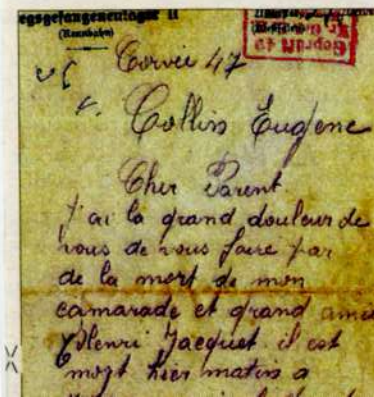 egsgefangenenlager II
(Rennbahn)
Geprüft 49
Corvée 47
Collin Eugene
Cher Parent
j'ai la grand douleur de
vous de vous faire par
de la mort de mon
camarade et grand ami
Henri Jacquet il est
mort hier matin a